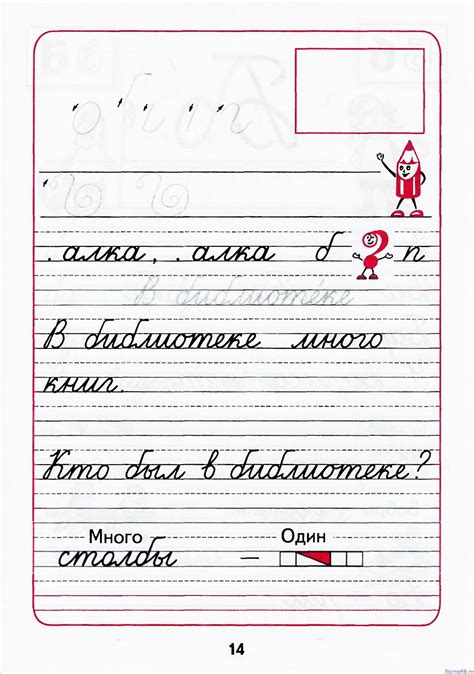 .алка, .алка б ? п
В библиотеке
В библиотеке много
книг.
Кто был в библиотеке?
Много Один
столбы —
14